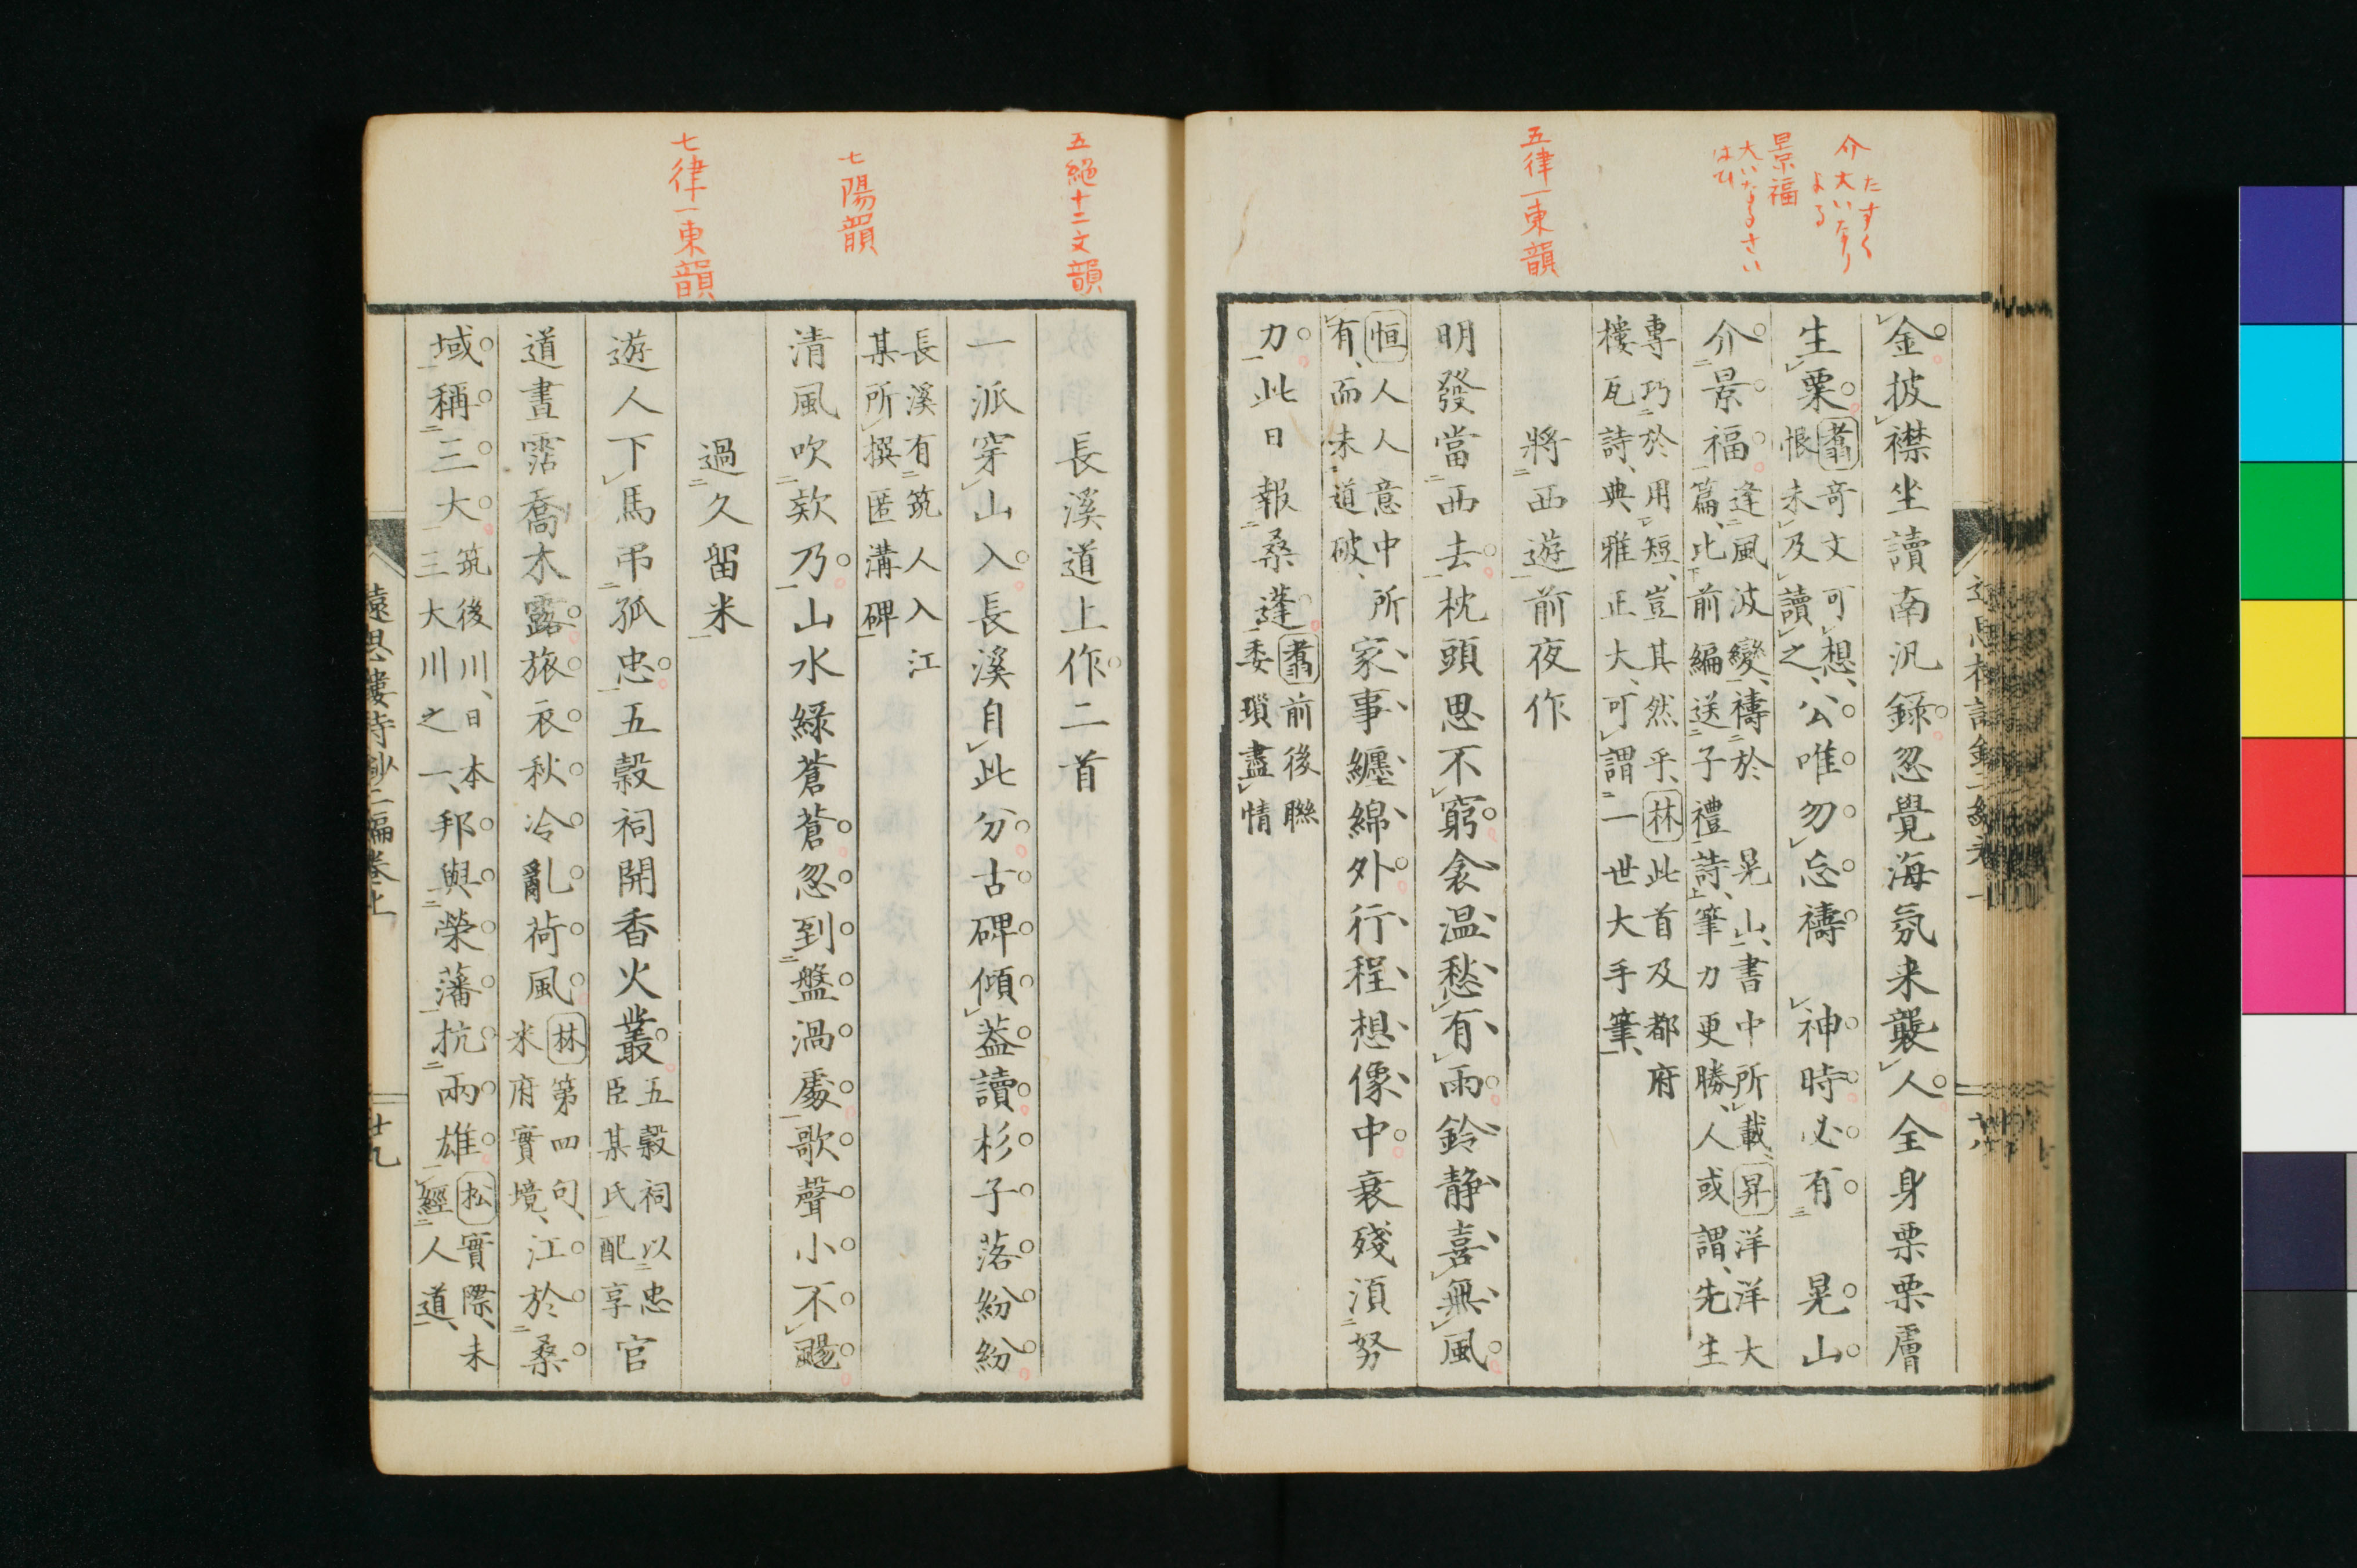 介 たすく
大いなり
よる
景福
大いなるさい
はひ
五律一東韻
金披襟坐讀南汎錄忽覺海氛来襲人全身栗栗膚
生粟
耈 奇文可想
恨未及讀之
公唯勿忘禱 神時必有 晃山
介景福
逢風波變禱於 晃山書中所載 昇 洋洋大
篇此前編送子禮詩筆力更勝人或謂先生
專巧於用短豈其然乎 林 此首及都府
樓瓦詩典雅正大可謂一世大手筆
將西遊前夜作
明發當西去枕頭思不窮衾温愁有雨鈴静喜無風
恒 人人意中所
有而未道破
家事纏綿外行程想像中衰殘須努
力此日報桑蓬
耈 前後聯
委瑣盡情
五絕十二文韻
七陽韻
七律一東韻
長溪道上作二首
一派穿山入長溪自此分古碑傾蓋讀杉子落紛紛
長溪有筑人入江
某所撰匿溝碑
清風吹欵乃山水緑蒼蒼忽到盤渦處歌聲小不颺
過久留米
遊人下馬弔孤忠五穀祠開香火叢
五穀祠以忠官
臣某氏配享
道書霑喬木露旅衣秋冷亂荷風
林 第四句
米府實境
江於桑
域稱三大
筑後川日本
三大川之一
邦與榮藩抗兩雄
松 實際未
經人道
遠思樓詩鈔二編卷上
廿九